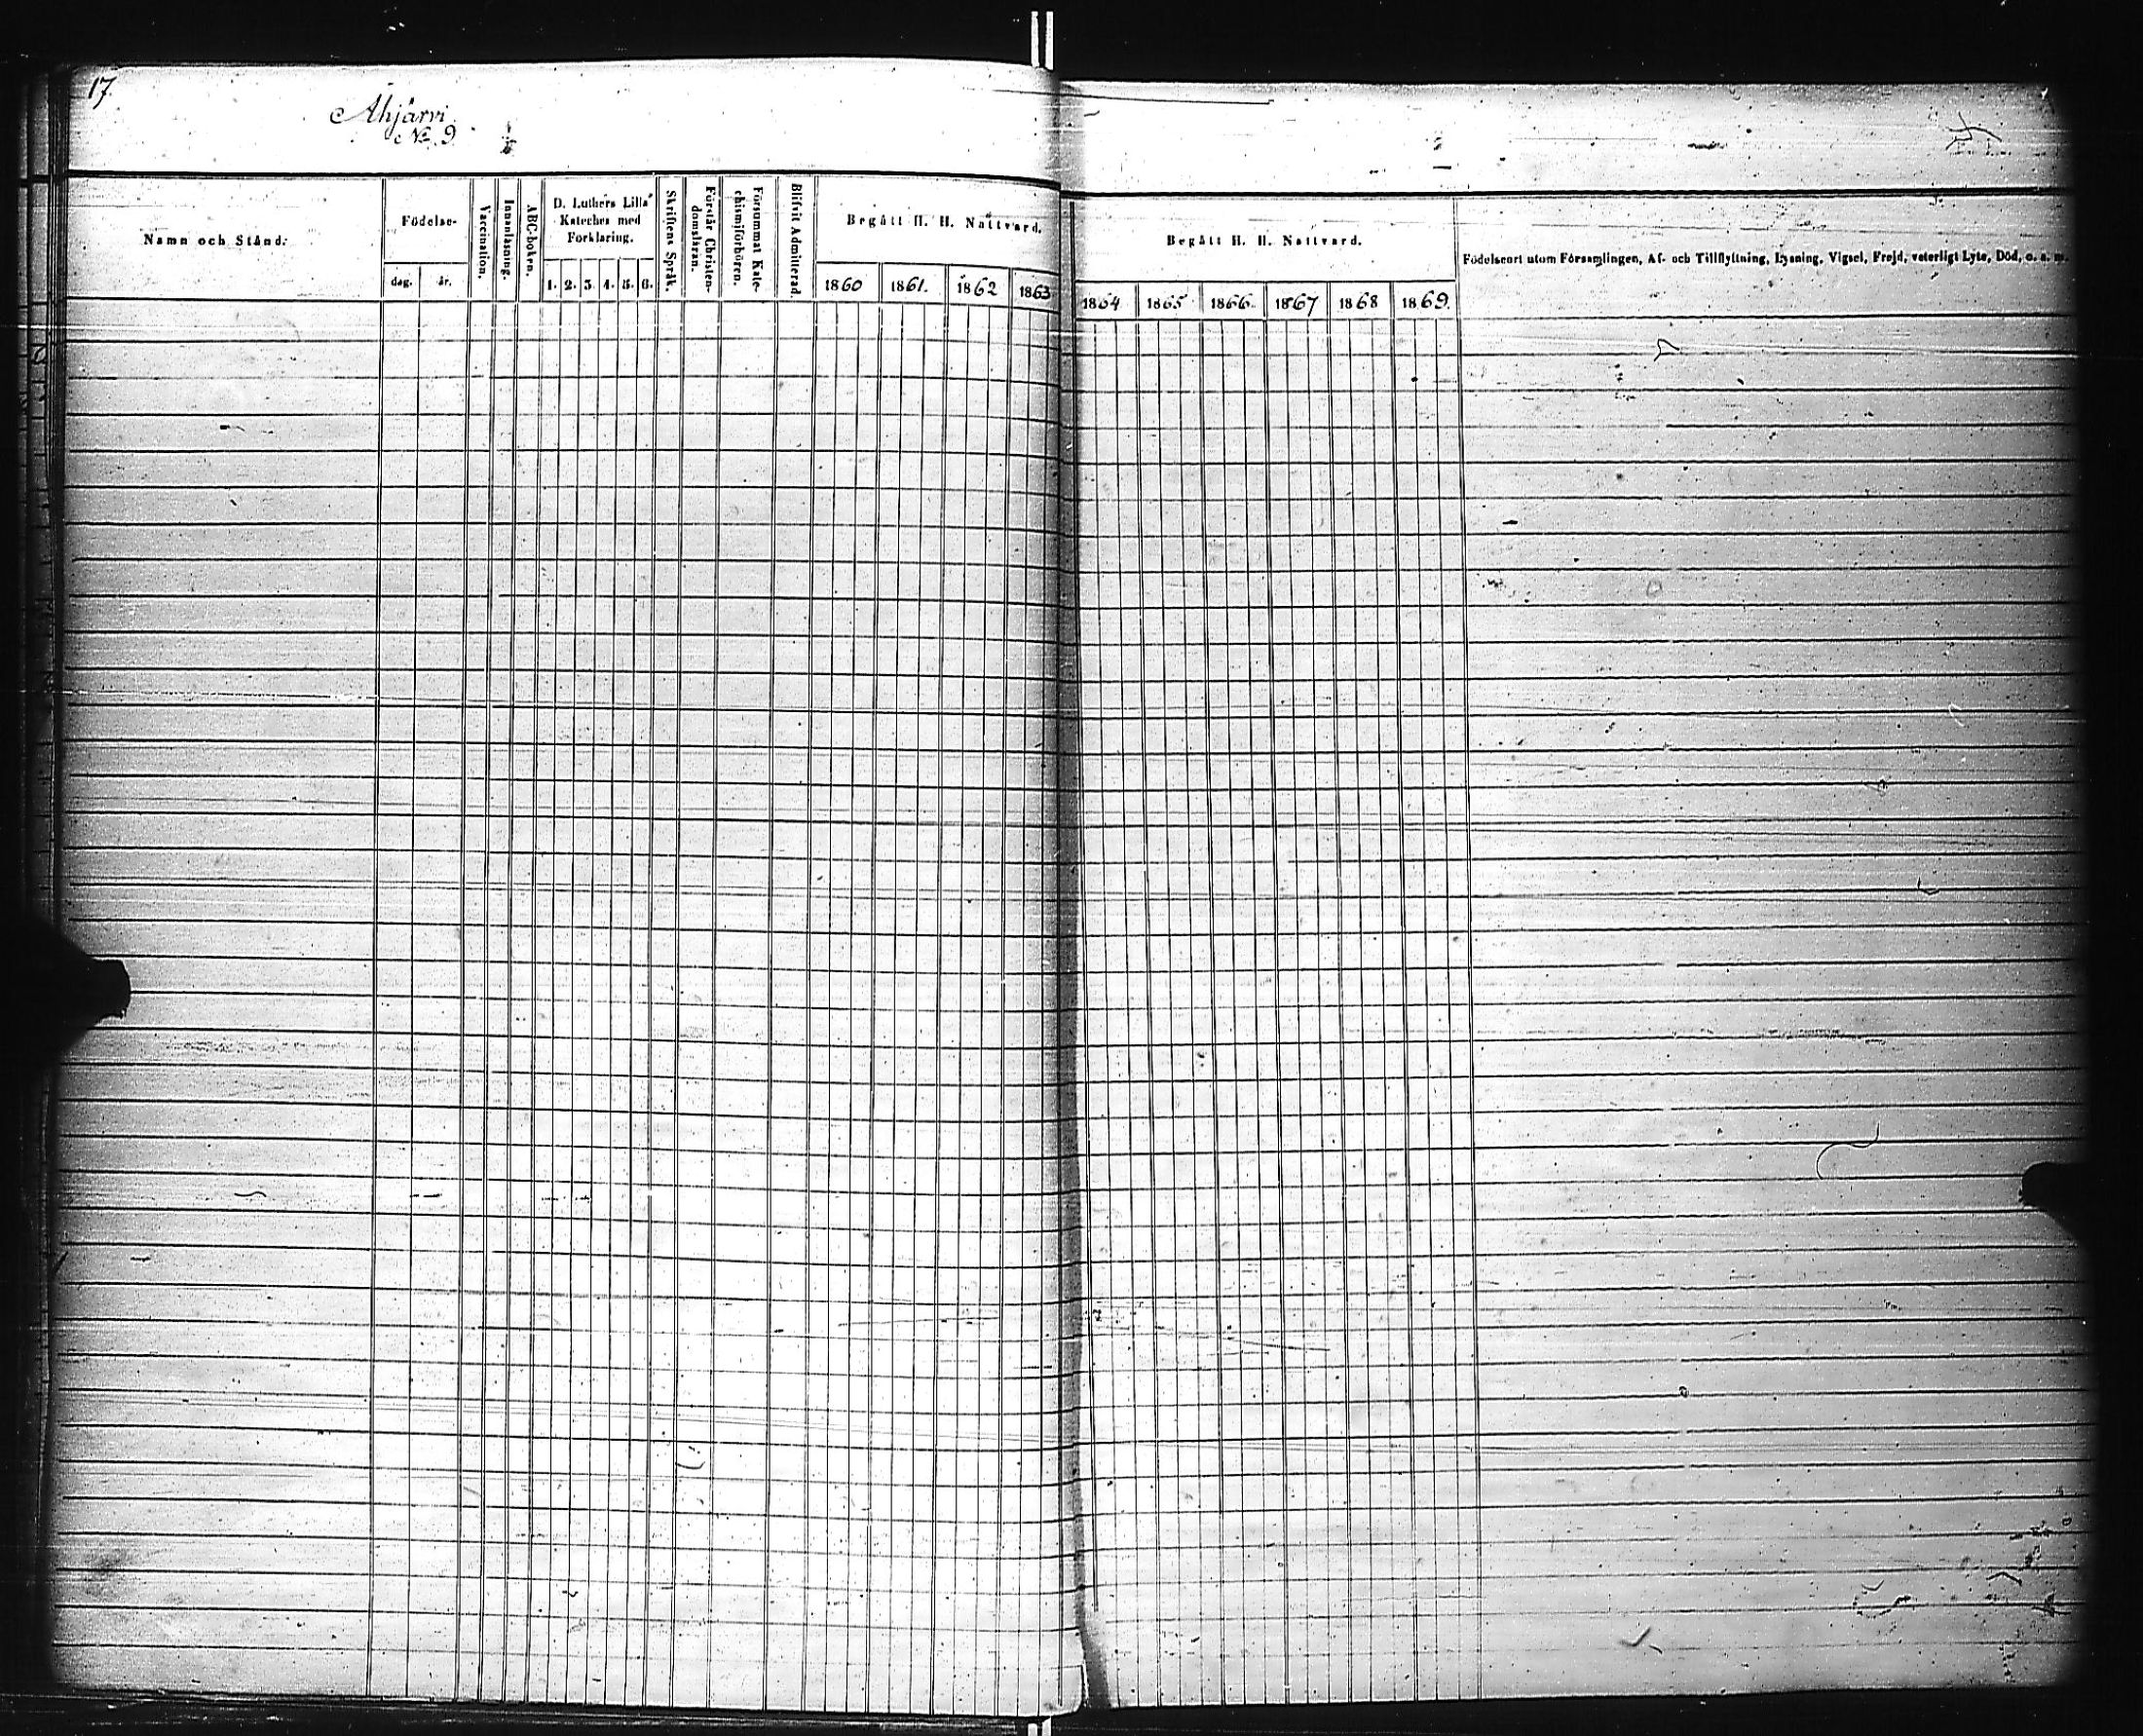 17.
Ahjärvi
No 9
Namn och Stånd.
Födelse-
dag. år.
Vaccination.
Innanläsning.
ABC-boken.
D. Luthers Lilla
Kateches med
Förklaring.
1. 2. 3. 4. 5. 6.
Skriftens Språk.
Förstår Christen-
domsläran.
Försummat Kate-
chismiförhören.
Blifvit Admitterad.
Begått H. H. Nattvard.
1860 1861. 1862 1863
Begått H. H. Nattvard.
1864 1865 1866 1867 1868 1869.
Födelseort utom Församlingen, Af- och Tillflyttning, Lysning, Vigsel, Frejd, veterligt Lyte, Död, o. s. m.